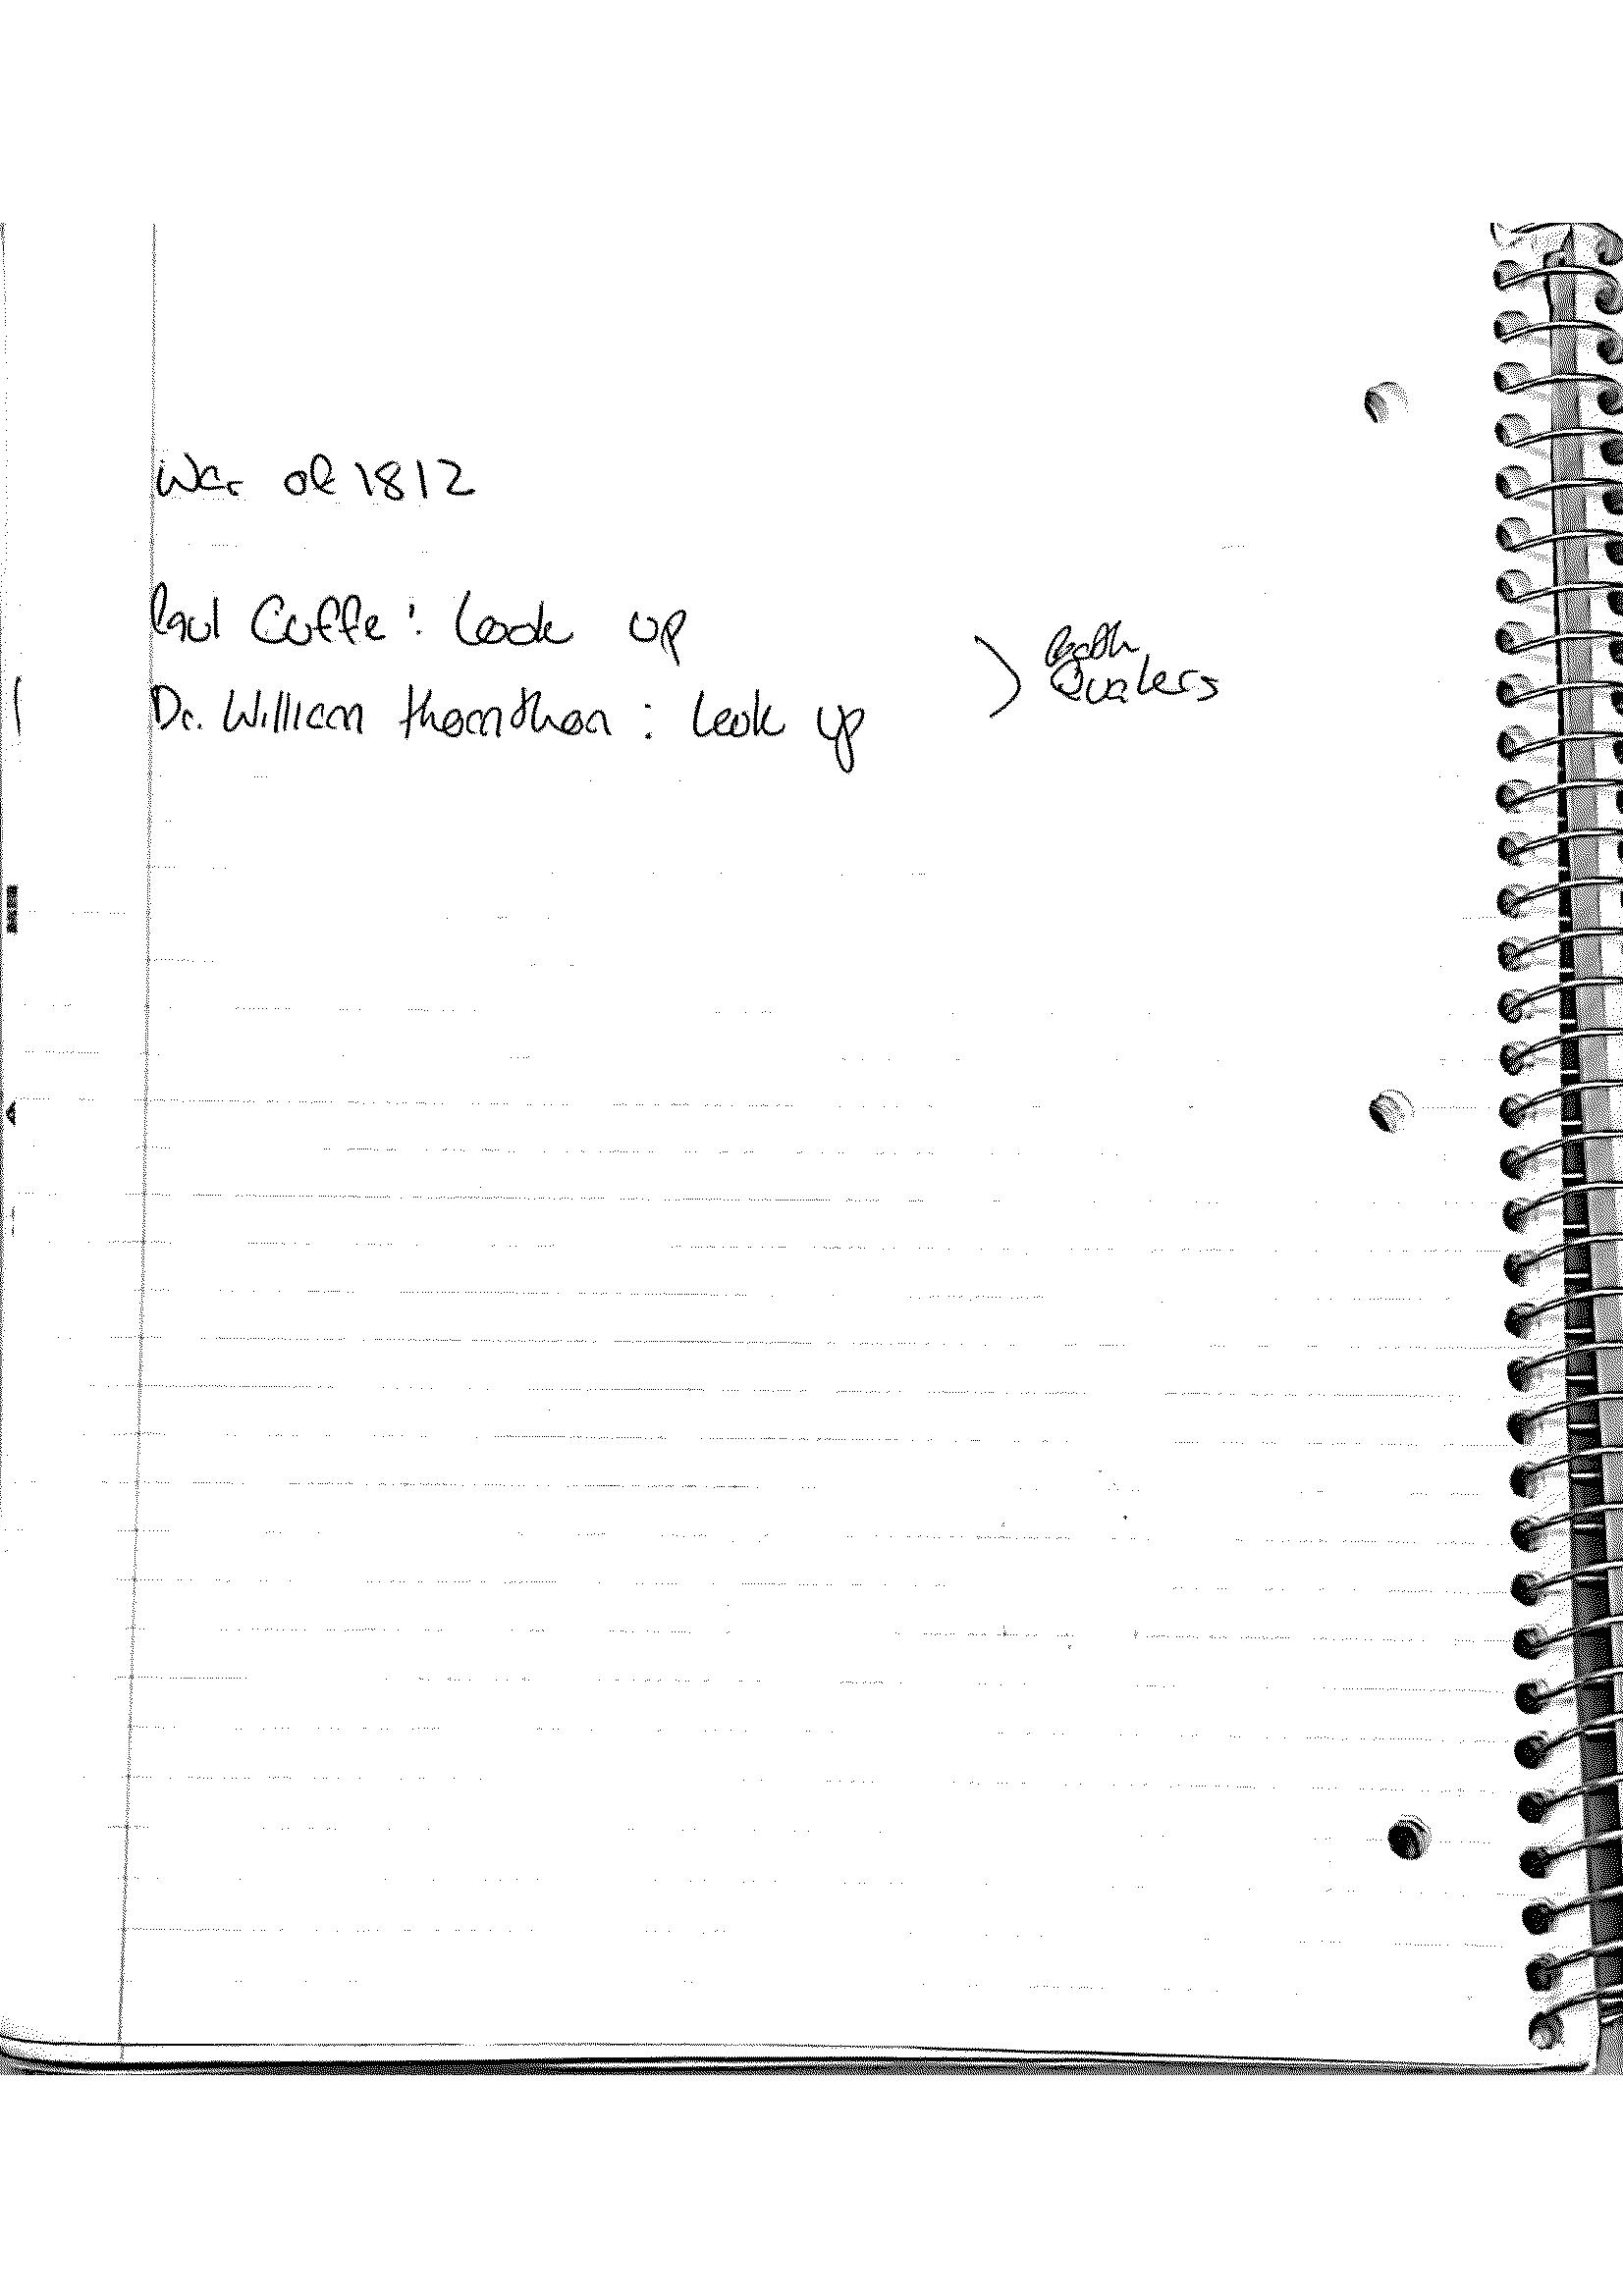 War of 1812
Paul Cuffe: Look up
Dr. William Thornthon: Look up
both
Quakers